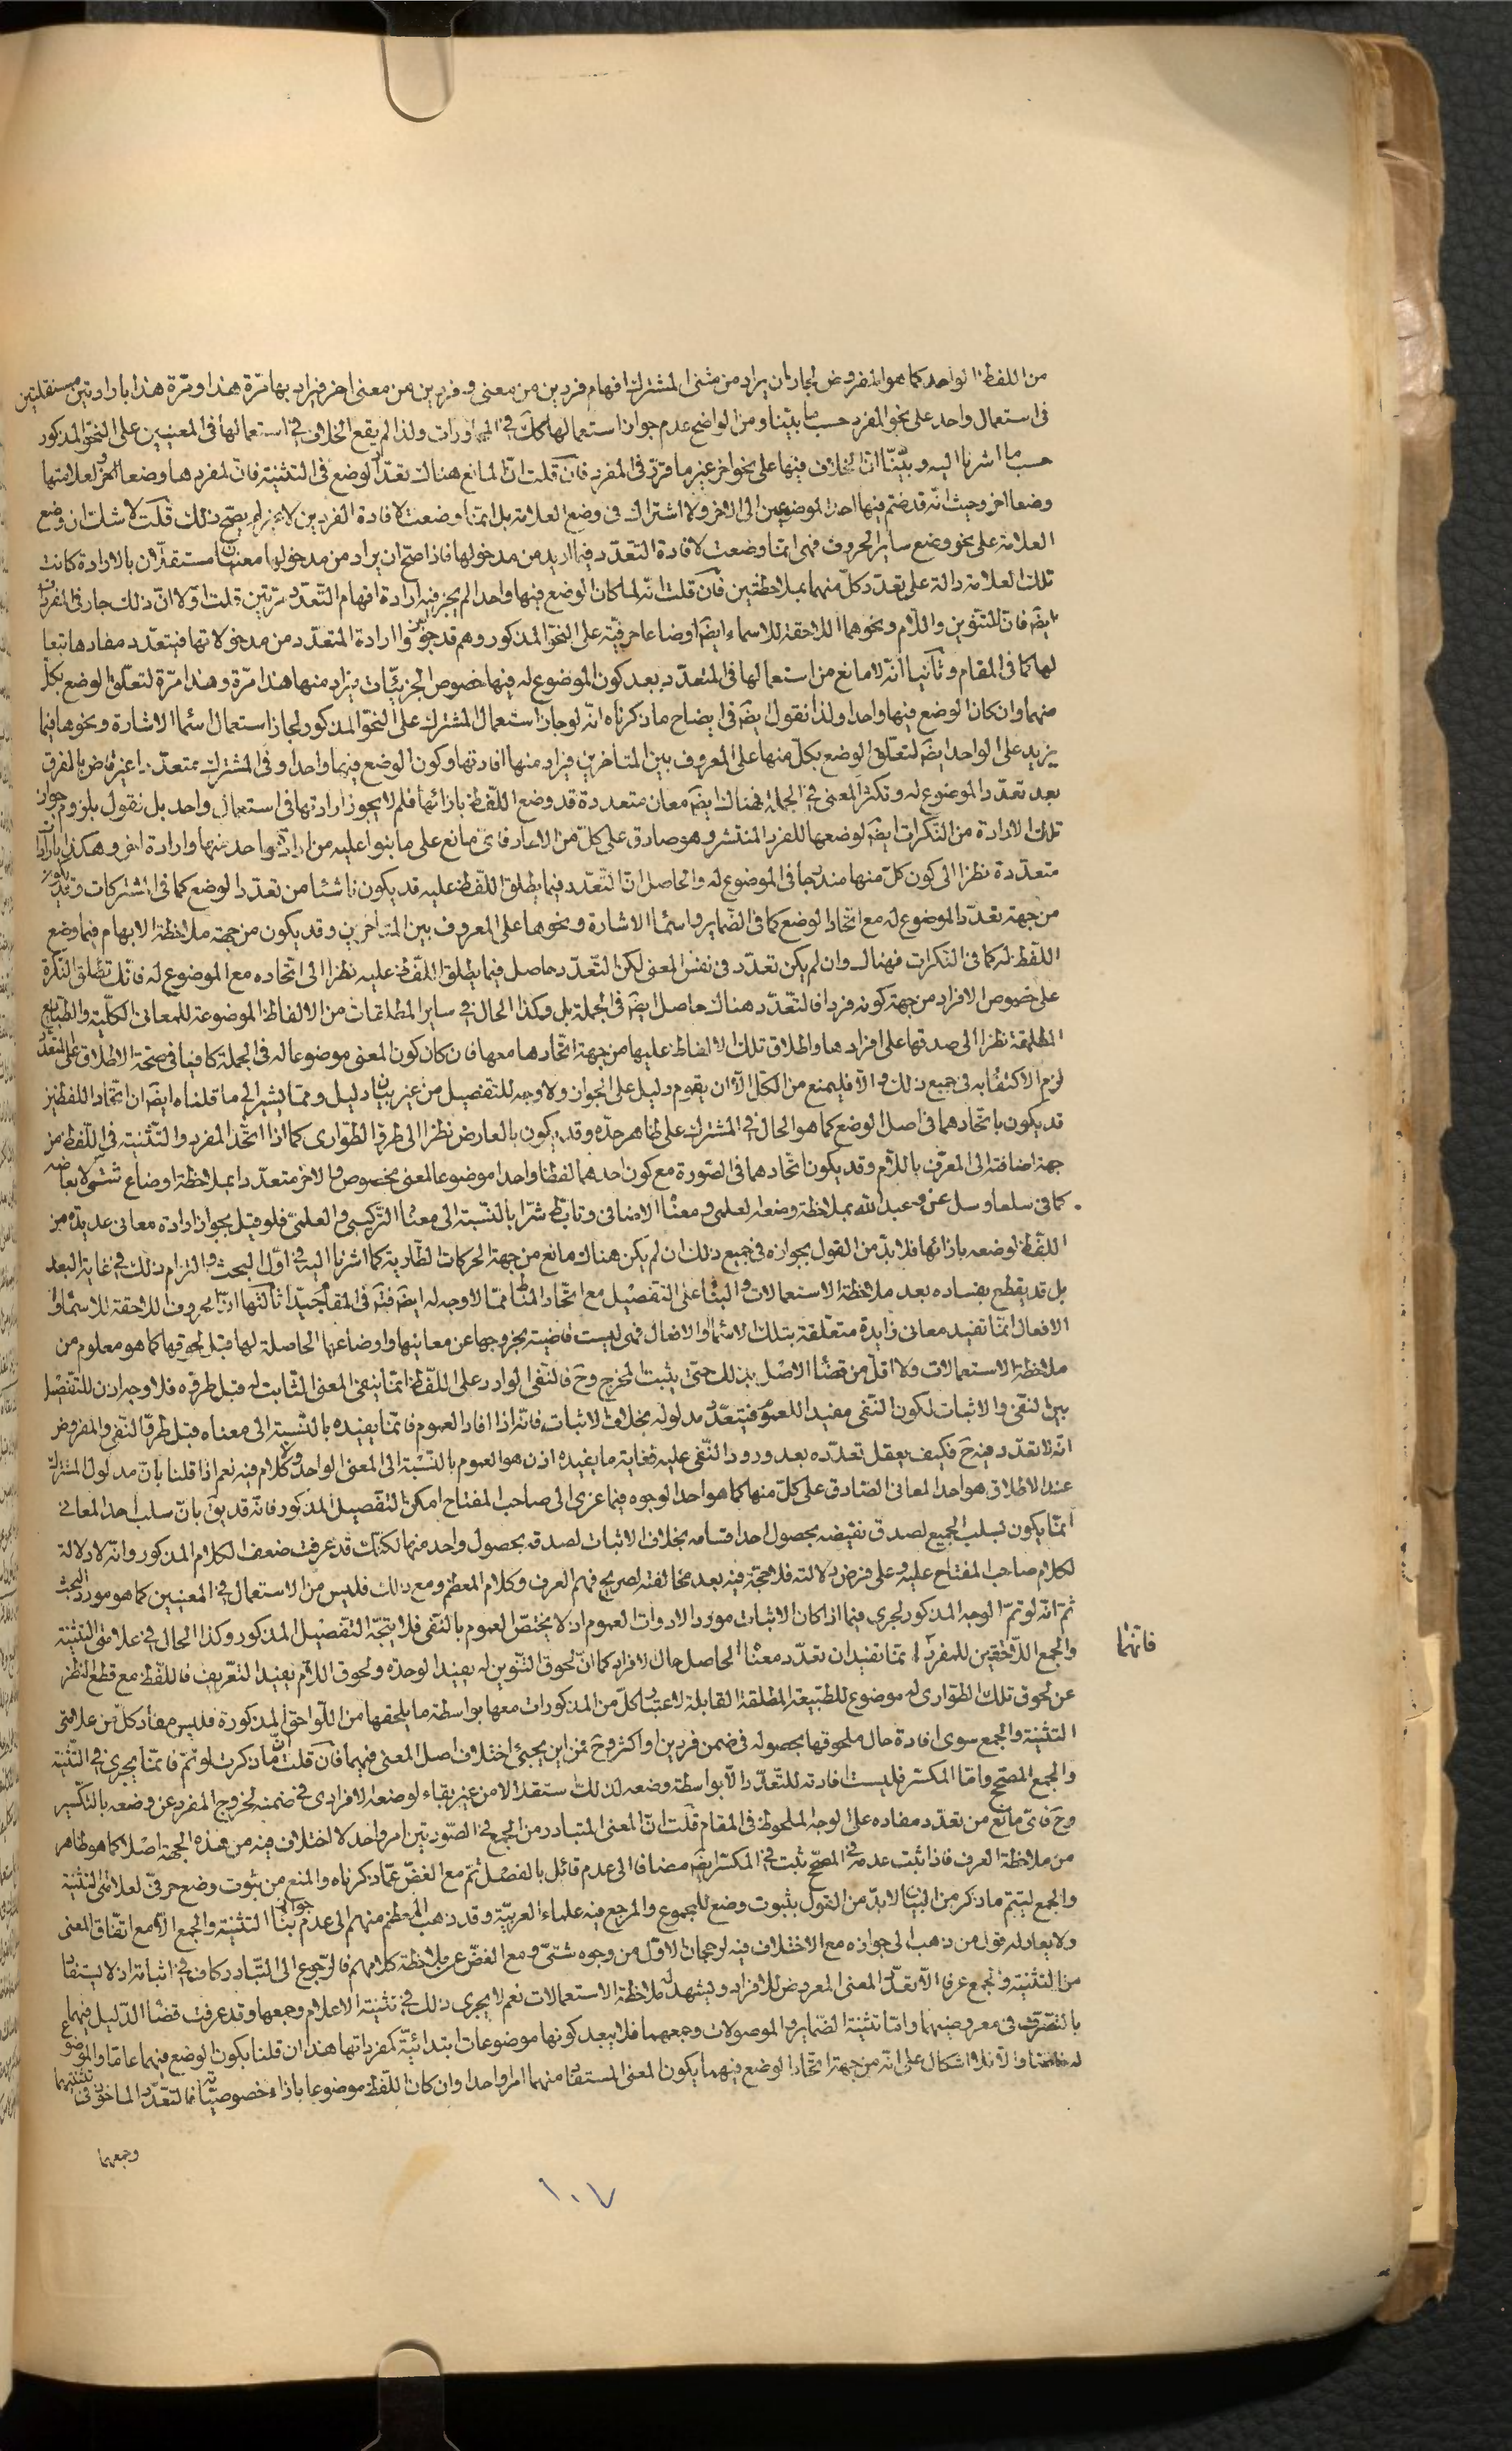 من اللفظ الواحد كما هو المفروض لجاز ان يراد من مثنى المشترك افهام فردين من معنى و فردين من معنى اخر فيراد بها مرّة هذا و مرّة هذا بارادتين مستقلتين
فى استعمال واحد على نحو المفرد حسب ما بيّناه و من الواضح عدم جواز استعمالها كك فى المحاورات و لذا لم يقع الخلاف فى استعمالها فى المعنيين على النحو المذكور
حسب ما اشرنا اليه و بيّنّا انّ الخلاف فيها على نحو اخر غير ما قرّر فى المفرد فان قلت انّ المانع هناك تعدّد الوضع فى التثنية فانّ لمفردها وضعا و لعلامتها
وضعا اخر و حيث انّه قد ضمّ فيها احد الموضوعين الى الاخر و لا اشتراك فى وضع العلامة بل انّما وضعت لافادة الفردين لا غير لم يصحّ ذلك قلت لا شك ان وضع
العلامة على نحو وضع ساير الحروف فهى انّما وضعت لافادة التعدّد فيما اريد من مدخولها فاذا صحّ ان يراد من مدخولها معنيان مستقلّان بالارادة كانت
تلك العلامة دالة على تعدّد كلّ منهما بملاحظتين فان قلت انّه لما كان الوضع فيها واحدا لم يجز فيه ارادة افهام التّعدّد مرّتين قلت اوّلا انّ ذلك جار فى المفردات
ايضَ فانّ للتنوين و اللّام و نحوهما اللاحقة للاسماء ايضَ اوضاعا حرفيّة على النحو المذكور و هم قد جوّزوا ارادة المتعدّد من مدخولاتها فيتعدّد مفادها تبعا
لها كما فى المقام و ثانيا انّه لا مانع من استعمالها فى المتعدّد بعد كون الموضوع له فيها خصوص الجزئيّات فيراد منها هذا مرّة و هذا مرّة لتعلّق الوضع بكلّ
منهما و ان كان الوضع فيها واحدا و لذا نقول ايضَ فى ايضاح ما ذكرناه انّه لو جاز استعمال المشترك على النحو المذكور لجاز استعمال اسماء الاشارة و نحوها فيما
يزيد على الواحد ايضَ لتعلّق الوضع بكلّ منها على المعروف بين المتاخرين فيراد منها افادتها و كون الوضع فيها واحدا و فى المشترك متعدّدا غير قاض بالفرق
بعد تعدّد الموضوع له و تكثّر المعنى فى الجملة فهناك ايضَ معان متعددة قد وضع اللّفظ بازائها فلم لا يجوز ارادتها فى استعمال واحد بل نقول بلزوم جواز
تلك الارادة من النّكرات ايضَ لوضعها للفرد المنتشر و هو صادق على كلّ من الاحاد فاىّ مانع على ما بنوا عليه من ارادة واحد منها و ارادة اخر و هكذا بارادات
متعدّدة نظرا الى كون كلّ منها مندرجا فى الموضوع له و الحاصل انّ التّعدّد فيما يطلق اللّفظ عليه قد يكون ناشئا من تعدّد الوضع كما فى المشتركات و قد يكون
من جهة تعدّد الموضوع له مع اتّحاد الوضع كما فى الضماير و اسماء الاشارة و نحوهما على المعروف بين المتاخرين و قد يكون من جهة ملاحظة الابهام فيما وضع
اللّفظ له كما فى النّكرات فهناك و ان لم يكن تعدّد فى نفس المعنى لكن التّعدّد حاصل فيما يطلق اللّفظ عليه نظرا الى اتحاده مع الموضوع له فانّك تطلق النّكرة
على خصوص الافراد من جهة كونه فردا فالتعدّد هناك حاصل ايضَ فى الجملة بل و كذا الحال فى ساير المطلقات من الالفاظ الموضوعة للمعانى الكلّية و الطبايع
المطلقة نظرا الى صدقها على افرادها و اطلاق تلك الالفاظ عليها من جهة اتّحادها معها فان كان كون المعنى موضوعا له فى الجملة كافيا فى صحّة الاطلاق على المتعدّد
لزم الاكتفاء به فى جميع ذلك و الّا فليمنع من الكلّ الّا ان يقوم دليل على الجواز و لا وجه للتفصيل من غير بيان دليل و ممّا يشير الى ما قلناه ايضَ ان اتّحاد اللفظين
قد يكون باتّحادهما فى اصل الوضع كما هو الحال فى المشترك على ظاهر حدّه و قد يكون بالعارض نظرا الى طروّ الطّوارى كما اذا اتّحد المفرد و التّثنية فى اللّفظ من
جهة اضافته الى المعرّف باللّام و قد يكون اتّحادهما فى الصّورة مع كون احدهما لفظا واحدا موضوعا لمعنى مخصوص و الاخر متعدّدا بملاحظة اوضاع شتّى لابعاضه
كما فى سلعا و سل عن و عبد اللّه بملاحظة وضعه العلمى و معناه الاضافى و تابّط شرّا بالنّسبة الى معناه التّركيبى و العلمىّ فلو قيل بجواز ارادة معانى عديدة من
اللّفظ لوضعه بازائها فلا بدّ من القول بجوازه فى جميع ذلك ان لم يكن هناك مانع من جهة الحركات الطّارية كما اشرنا اليه فى اوّل البحث و التزام ذلك فى غاية البعد
بل قد يقطع بفساده بعد ملاحظة الاستعمالات و البناء على التفصيل مع اتّحاد المناط ممّا لا وجه له ايضَ فتَم فى المقام جيّدا ثالثها انّ الحروف اللاحقة للاسماء و
الافعال انّما تفيد معانى زايدة متعلّقة بتلك الاسماء و الافعال فهى ليست قاضية بخروجها عن معانيها و اوضاعها الحاصلة لها قبل لحوقها كما هو معلوم من
ملاحظة الاستعمالات و لا اقلّ من قضاء الاصل بذلك حتّى يثبت المخرج و حَ فالنّفى الوارد على اللّفظ انّما ينفى المعنى الثّابت له قبل طروّه فلا وجه اذن للتفصيل
بين النّفى و الاثبات لكون النّفى مفيدا للعموم فيتعدّد مدلوله بخلاف الاثبات فانّه اذا افاد العموم فانّما يفيده بالنّسبة الى معناه قبل طروّ النّفى و المفروض
انّه لا تعدّد فيه حَ فكيف يعقل تعدّده بعد ورود النّفى عليه فغاية ما يفيده اذن هو العموم بالنّسبة الى المعنى الواحد و لا كلام فيه نعم اذا قلنا بانّ مدلول المشترك
عند الاطلاق هو احد المعانى الصّادق على كلّ منها كما هو احد الوجوه فيما عزى الى صاحب المفتاح امكن التّفصيل المذكور فانّه قد يقَ بانّ سلب احد المعانى
انّما يكون بسلب الجميع لصدق نقيضه بحصول احد اقسامه بخلاف الاثبات لصدقه بحصول واحد منها لكنّك قد عرفت ضعف الكلام المذكور و انّه لا دلالة
لكلام صاحب المفتاح عليه و على فرض دلالته فلا حجّة فيه بعد مخالفته لصريح فهم العرف و كلام المعظم و مع ذلك فليس من الاستعمال فى المعنيين كما هو مورد البحث
ثمّ انّه لو تمّ الوجه المذكور لجرى فيما اذا كان الاثبات موردا لادوات العموم اذ لا يختصّ العموم بالنّفى فلا يتّجه التّفصيل المذكور و كذا الحال فى علامتى التثنية
فانهما
و الجمع اللّاحقتين للمفرد انّما تفيدان تعدّد معناه الحاصل حال الافراد كما انّ لحوق التّنوين له يفيد الوحدة و لحوق اللّام يفيد التّعريف فاللّفظ مع قطع النّظر
عن لحوق تلك الطوارى له موضوع للطّبيعة المطلقة القابلة لاعتبار كلّ من المذكورات معها بواسطة ما يلحقها من اللّواحق المذكورة فليس مفاد كلّ من علامتى
التثنية و الجمع سوى افادة حال ملحوقها بحصوله فى ضمن فردين او اكثر و حَ فمن اين يجيئ اختلاف اصل المعنى فيهما فان قلت انّ ما ذكرت لو تمّ فانّما يجرى فى التّثنية
و الجمع المصحّح و امّا المكسّر فليست افادته للتّعدّد الّا بواسطة وضعه لذلك مستقلا من غير بقاء لوضعه الافرادى فى ضمنه لخروج المفرد عن وضعه بالتكسير
و حَ فاىّ مانع من تعدّد مفاده على الوجه الملحوظ فى المقام قلت انّ المعنى المتبادر من الجمع فى الصّورتين امر واحد لا اختلاف فيه من هذه الجهة اصلا كما هو ظاهر
من ملاحظة العرف فاذا ثبت عدمه فى المصحّح ثبت فى المكسّر ايضَ مضافا الى عدم قائل بالفصل ثمّ مع الغضّ عمّا ذكرناه و المنع من ثبوت وضع حرفىّ لعلامتى التثنية
و الجمع ليتمّ ما ذكر من البيان لا بدّ من القول بثبوت وضع للمجموع و المرجع فيه علماء العربيّة و قد ذهب المعظم منهم الى عدم جواز بناء التثنية و الجمع الّا مع اتّفاق المعنى
و لا يعادله قول من ذهب الى جوازه مع الاختلاف فيه لرجحان الاوّل من وجوه شتّى و مع الغضّ عن ملاحظة كلامهم فالرّجوع الى التّبادر كاف فى اثباته اذ لا يستفاد
من التثنية و الجمع عرفا الّا تعدّد المعنى المعروض للافراد و يشهد له ملاحظة الاستعمالات نعم لا يجرى ذلك فى تثنية الاعلام و جمعها و قد عرفت قضاء الدّليل فيهما
بالتّصرّف فى معروضيهما و امّا تثنية الضّماير و الموصولات و جمعهما فلا يبعد كونها موضوعات ابتدائيّة كمفرداتها هذا ان قلنا بكون الوضع فيهما عامّا و الموضوع
له خاصّا و الّا فلا اشكال على انّه من جهة اتّحاد الوضع فيهما يكون المعنى المستفاد منهما امرا واحدا و ان كان اللّفظ موضوعا بازاء خصوصيّاته فالتعدّد الماخوذ فى تثنيتهما
و جمعهما
١٠٧